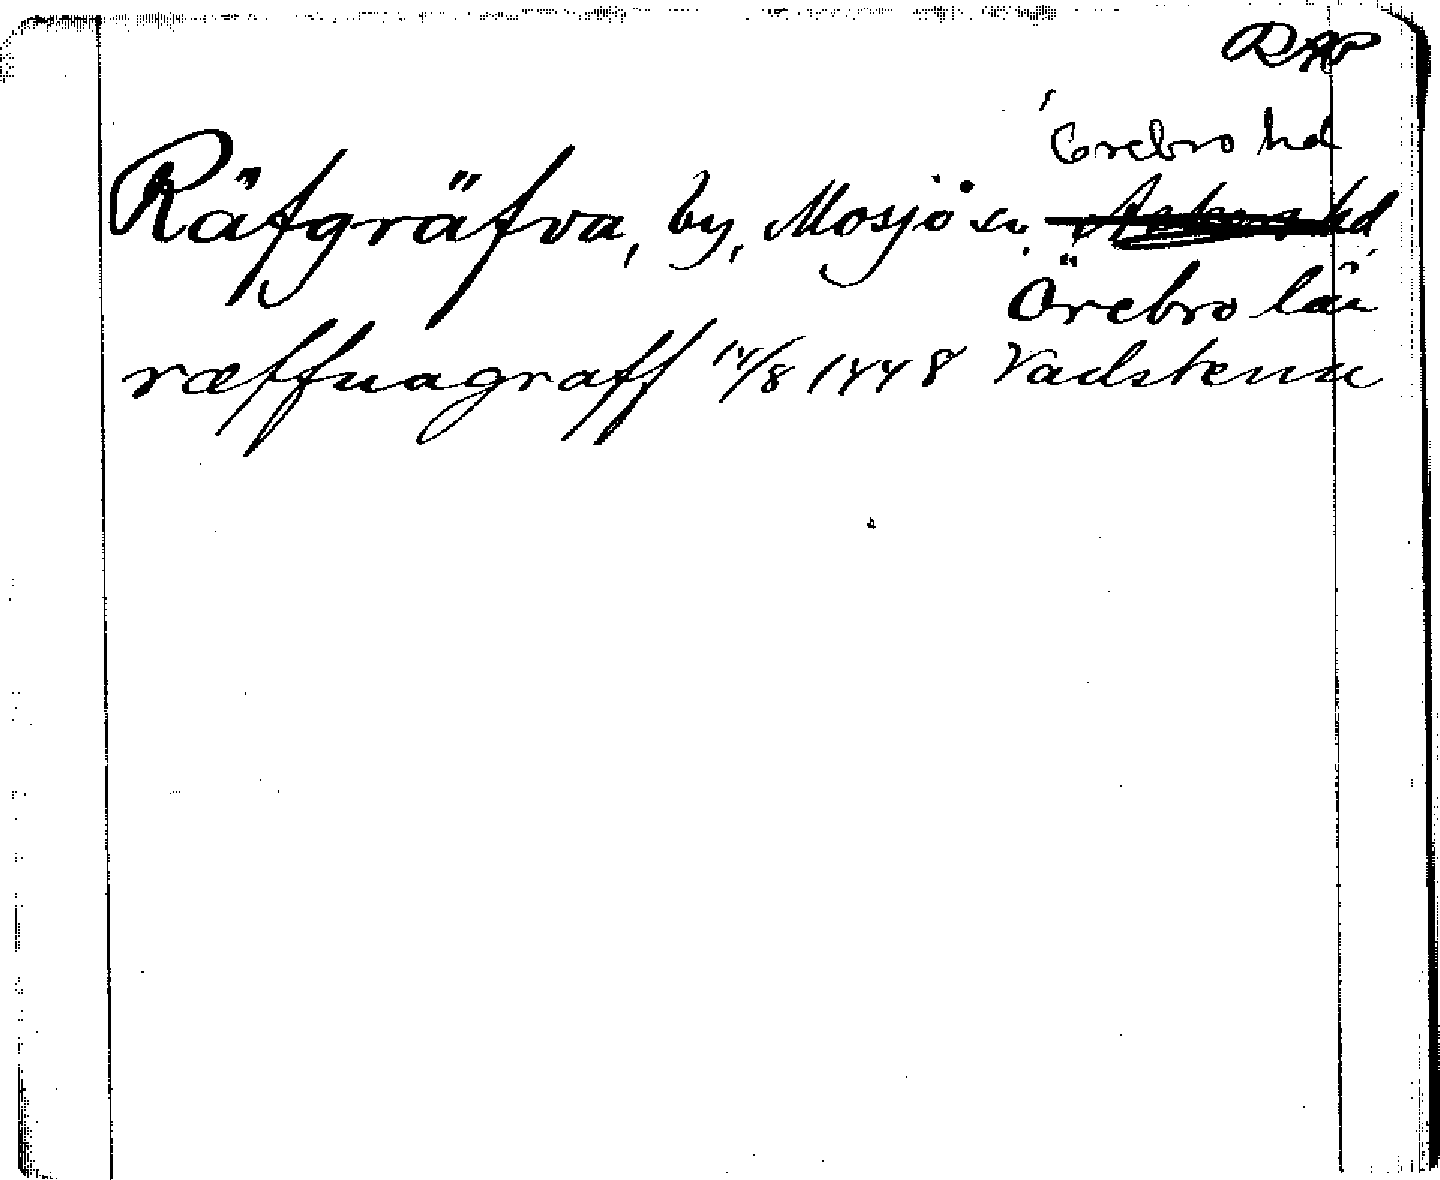 RAP
Örebro hd
Räfgräfva, by, Mosjö sn, Askers hd
Örebro län
ræffnagraff 14/8 1448 Vadstena